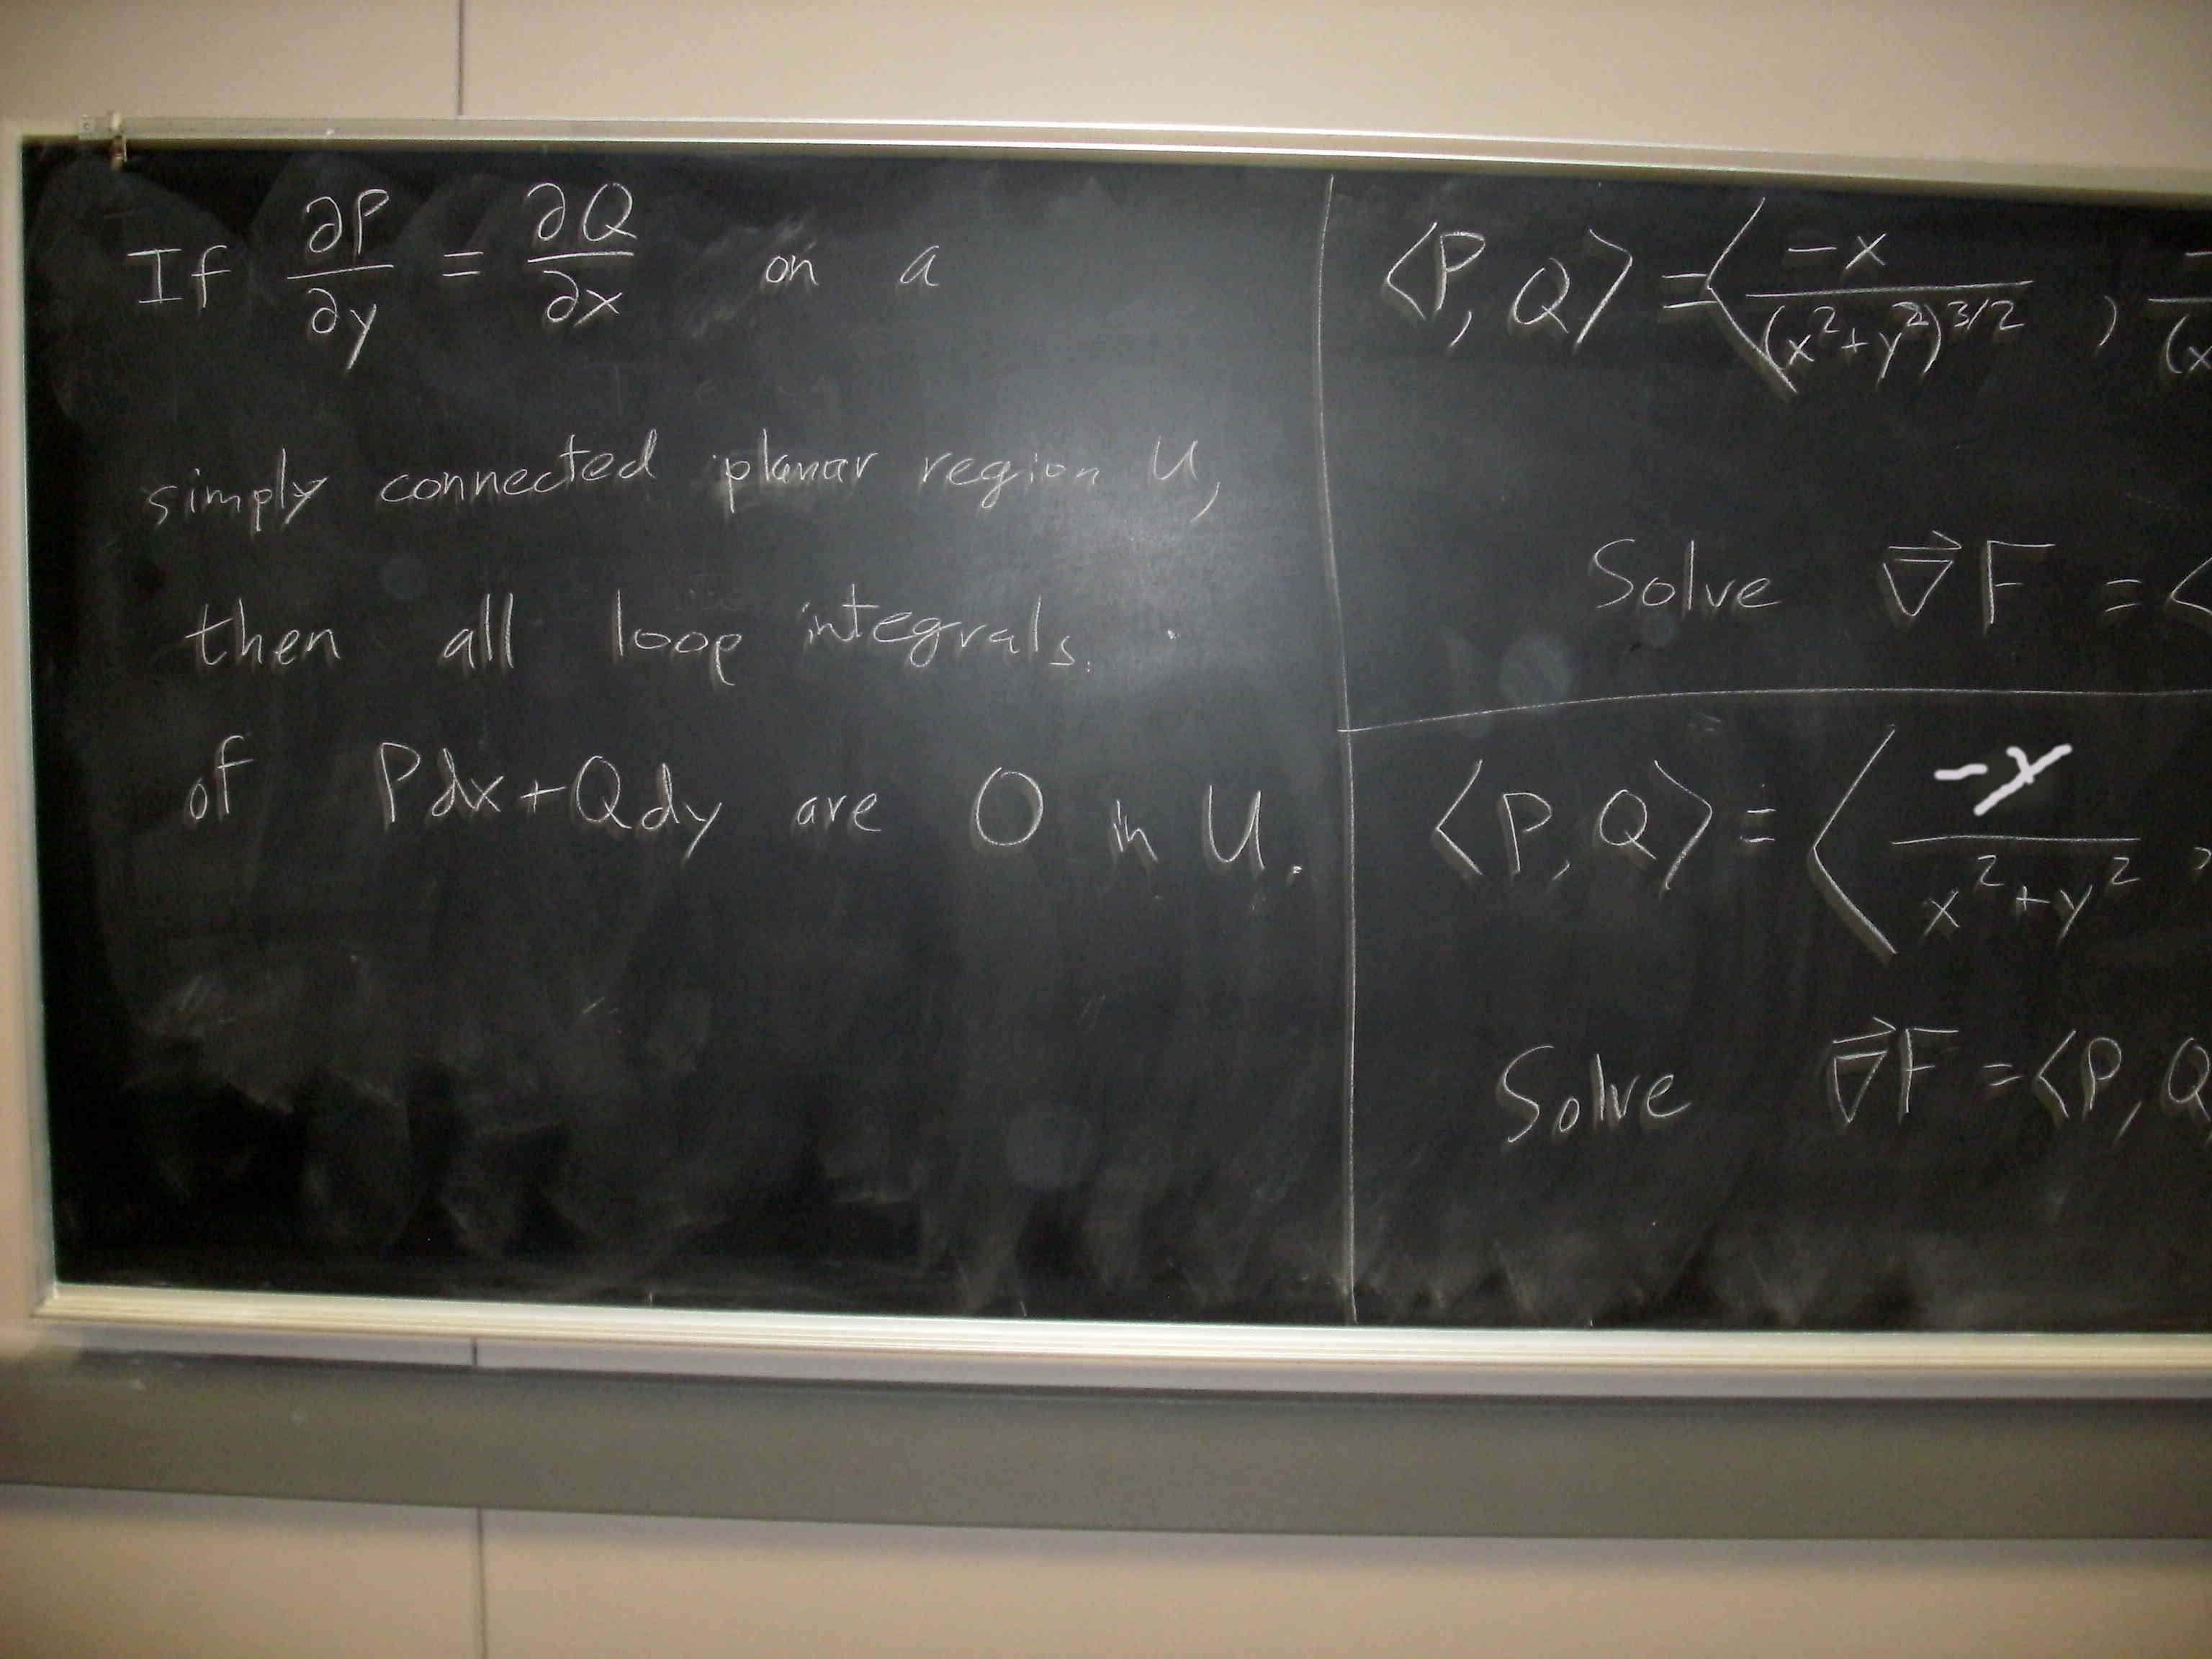 If ∂P/∂y = ∂Q/∂x on a
simply connected planar region U,
then all loop integrals
of Pdx+Qdy are 0 in U.
⟨P, Q⟩ = ⟨ -x/(x²+y²)^3/2 , -/(x
Solve ∇⃗F = ⟨
⟨P, Q⟩ = ⟨ -y/x²+y² ,
Solve ∇⃗F = ⟨P, Q